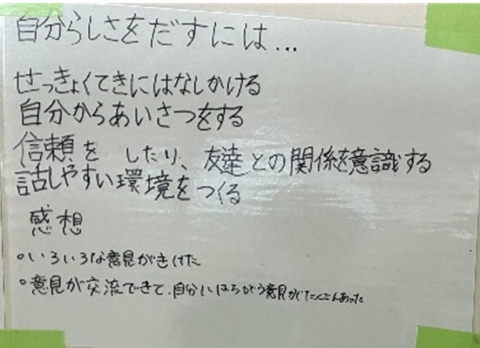 自分らしさをだすには...
せっきょくてきにはなしかける
自分からあいさつをする
信頼を したり、友達との関係を意識する
話しやすい環境をつくる
感想
○いろいろな意見がきけた
○意見が交流できて、自分にはちがう意見がたくさんあった